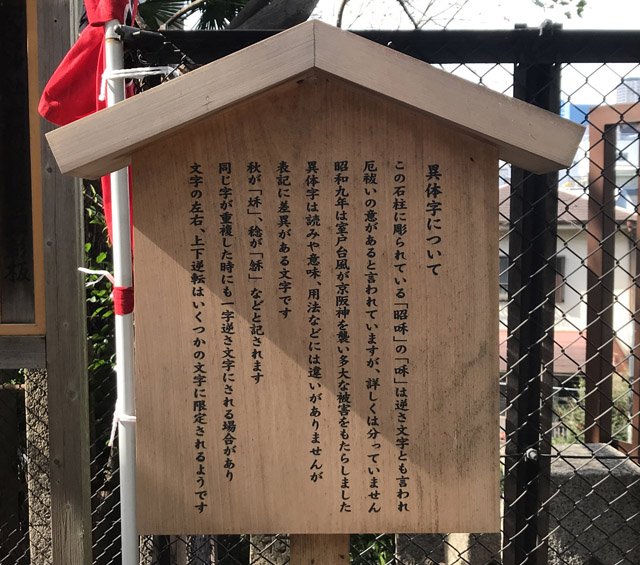 異体字について
この石柱に彫られている「昭咊」の「咊」は逆さ文字とも言われ
厄祓いの意があると言われていますが、詳しくは分っていません
昭和九年は室戸台風が京阪神を襲い多大な被害をもたらしました
異体字は読みや意味、用法などには違いがありませんが
表記に差異がある文字です
秋が「秌」、稔が「𥡝」などと記されます
同じ字が重複した時にも一字逆さ文字にされる場合があり
文字の左右、上下逆転はいくつかの文字に限定されるようです